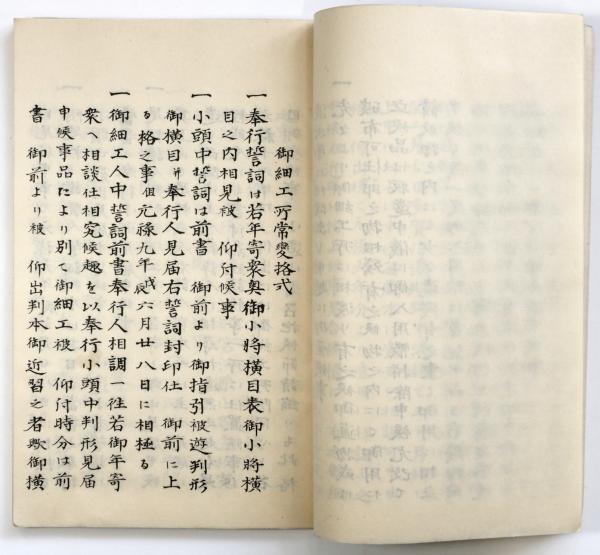 御細工所常変格式
一奉行誓詞は若年寄衆奥御小将横目表御小将横
目之内相見被　仰付候事
一小頭中誓詞は前書　御前より御指引被遊判形
御横目并奉行人見届右誓詞封印仕　御前に上
る格之事但元禄九年丙子六月廿八日に相極る
一御細工人中誓詞前書奉行人相調一往若御年寄
衆へ相談仕相究候趣を以奉行小頭中判形見届
申候事品により別て御細工被　仰付時分は前
書　御前より被　仰出判本御近習之者歟御横